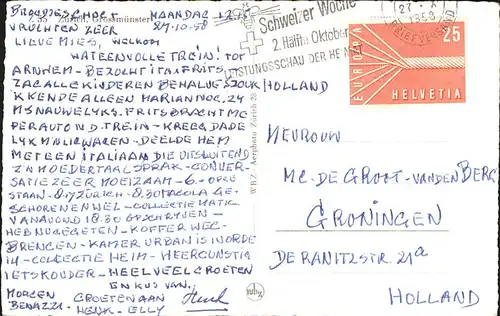 Z 55 Zürich, Grossmünster
MAANDAG 12
27-10-58
LIEVE MIES, WELKOM
WATEEN VOLLE TREIN! TOT
ARNHEM - BEZOCHT ITA FRITS
ZAG ALLE KINDEREN BEHALVE
KKENDE ALLEEN MARIANNO. 24
FRITS BRACHT ME
PER AUTO N D. TREIN - KREEG DADE
DEELDE HEM
MET EEN ITALIAAN DIE UITSLUITEND
Z'N MOEDERTAAL SPRAK - CONVER-
SATIE ZEER MOEIZAAM - 6 - OPGE
STAAN - 8.17 ZÜRICH - 8.30 PAOLA GE-
SCHOREN ENWEL - COLLECTIE MATIK
VANAVOND 18.30 GESCHREVEN -
HEB NU GEGETEN - KOFFER WEG-
BRENGEN - KAMER URBAN IS IN ORDE
COLLECTIE HEIM - WEER GUNSTIG
IETS KOUDER - HEEL VEEL GROETEN
EN KUS VAN,
MORGEN GROETEN AAN Henk
BENAZZI - HENK - ELLY
WBZ - Aerophoto Zürich
wbz
Schweizer Woche
2. Hälfte Oktober
LEISTUNGSSCHAU DER HEIMAT
27. X
1958
BRIEFVERSAND
EUROPA
25
HELVETIA
HOLLAND
MEVROUW
MC. DE GROOT-VANDENBERG
GRONINGEN
DE RANITZSTR. 21a
HOLLAND